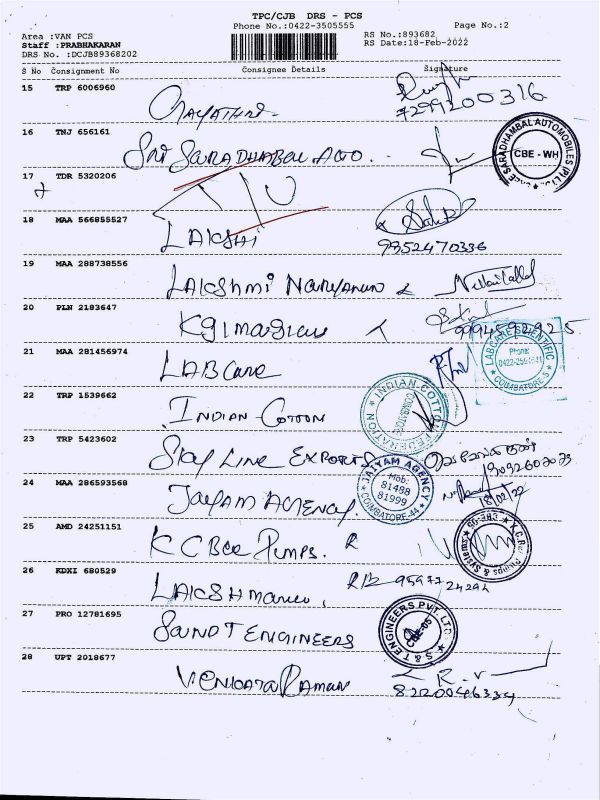 TPC/CJB DRS - PCS
Phone No.:0422-3505555 Page No.:2
Area :VAN PCS RS No.:893682
Staff :PRABHAKARAN RS Date:18-Feb-2022
DRS No. :DCJB89368202
S No Consignment No Consignee Details Signature
15 TRP 6006960 GAYATHRI 7299200316
16 TNJ 656161 Sri SARADHABAL AUTO SARADHAMBAL AUTOMOBILES (P) L CBE - WH
17 TDR 5320206
18 MAA 566855527 LAKSHI 9952470336
19 MAA 288738556 LAKSHMI Narayanan
20 PLN 2183647 KGImagian 9994592925
21 MAA 281456974 LAB Care LABCARE SCIENTIFIC Phone: COIMBATORE
22 TRP 1539662 INDIAN COTTON INDIAN COTTON FEDERATION
23 TRP 5423602 SKY LINE EXPORTS
24 MAA 286593568 JAIYAM AGENCY. JAIYAM AGENCY Mob: 81488 81999 COIMBATORE-44 18/02/22
25 AMD 24251151 K C BCR PUMPS. Pumps & Systems
26 KDXI 680529 LAKSHMANN
27 PRO 12781695 S AND T ENGINEERS S&T ENGINEERS PVT. LTD. CBE-05
28 UPT 2018677 VENKATA RAMAN 8220046334